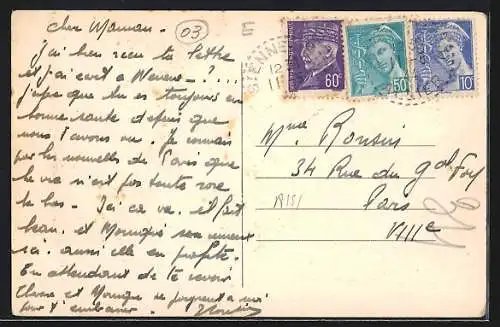 Cher Maman.
03
J'ai bien reçu ta lettre
et j'ai écrit à
j'espère que tu es toujours en
bonne santé depuis que
nous t'avons vu. Je connais
par les nouvelles de Paris que
la vie n'est pas toute rose
là bas. Ici ça va. et il fait
beau. et Monique
ici. aussi elle en profite.
En attendant de te revoir
et Monique se joignent à moi
pour t'embrasser.
60c
50
10c
Mme Ronsin
34 Rue du Gal Foy
Paris
VIIIe